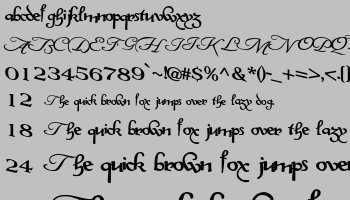 abcdefghijklmnopqrstuvwxyz
ABCDEFGHIJKLMNOPQ
0123456789`~!@#$%^&*()-_+=>,<.[]
12 The quick brown fox jumps over the lazy dog.
18 The quick brown fox jumps over the lazy
24 The quick brown fox jumps over